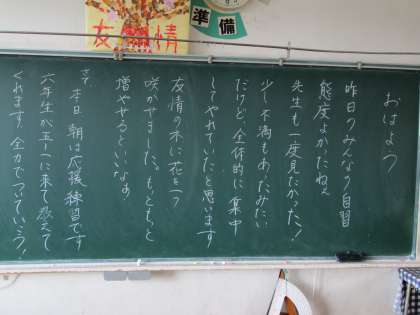 友情
準備
おはよう
昨日のみんなの自習
態度よかったねぇ
先生も一度見たかった！
少し不満もあったみたい
だけど、全体的に集中
してやれていたと思います
友情の木に花を一つ
咲かせました。もっともっと
増やせるといいなぁ
さて、本日朝は応援練習です
六年生が五の一に来て教えて
くれます。全力でついていこう！